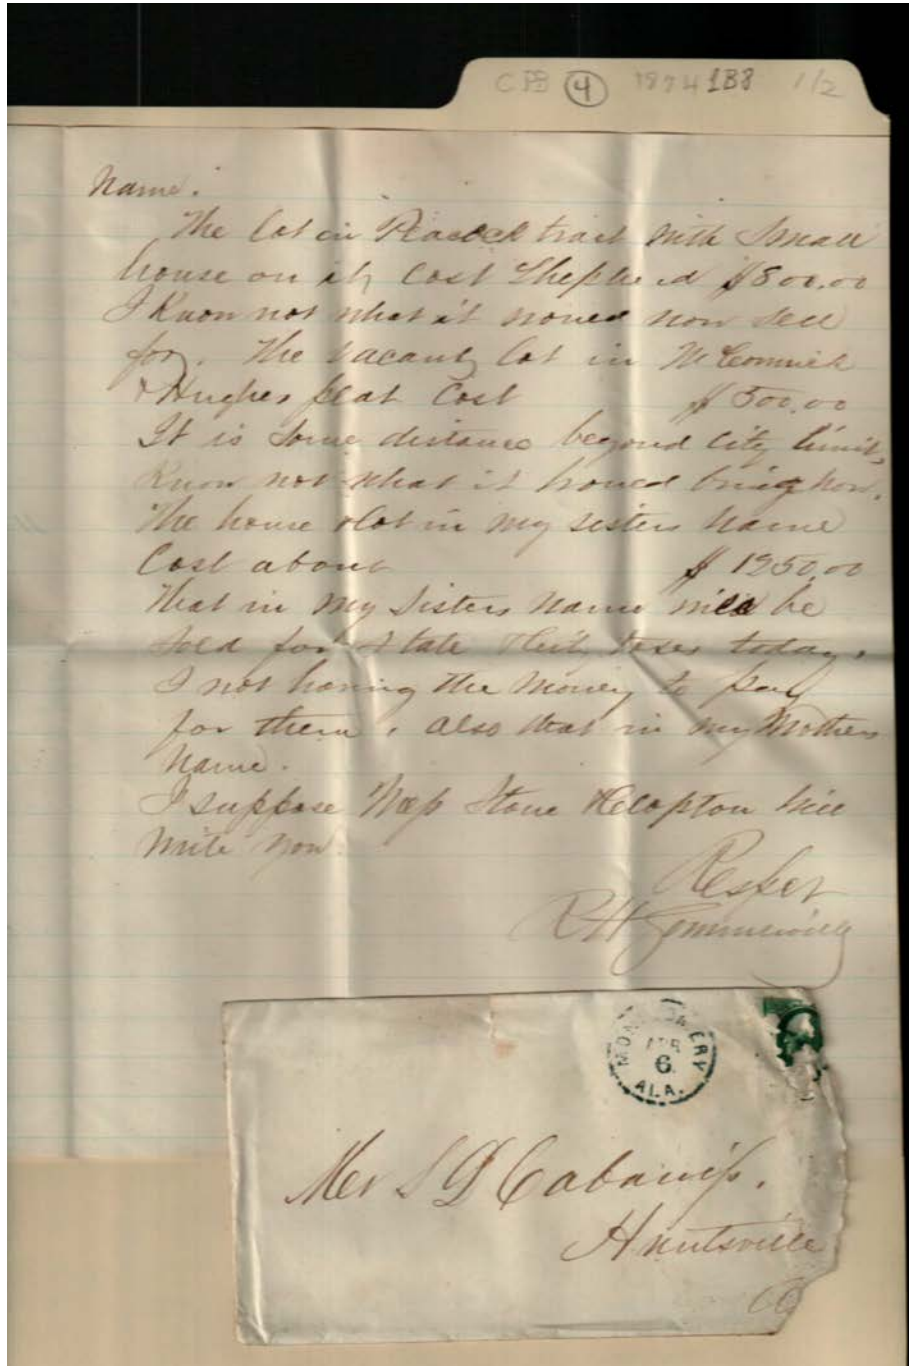 CPB 4 1874 1B8 1/2
Name.
The lot in Peacock tract with Small
house on it, Cost Shepherd $800.00
I Know not what it would now sell
for. The vacant lot in McCormick
& Hughes plat Cost $500.00
It is some distance beyond city limits,
Know not what it would bring now.
The house & lot in my sisters name
Cost about $1250.00
That in my Sisters name will be
Sold for State & City taxes today,
I not having the money to pay
for them, also that in my Mothers
Name.
I suppose Mess Stone & Clopton will
write you.
Respet
R H
MONTGOMERY
APR
6
ALA.
Mr S D Cabaniss.
Huntsville